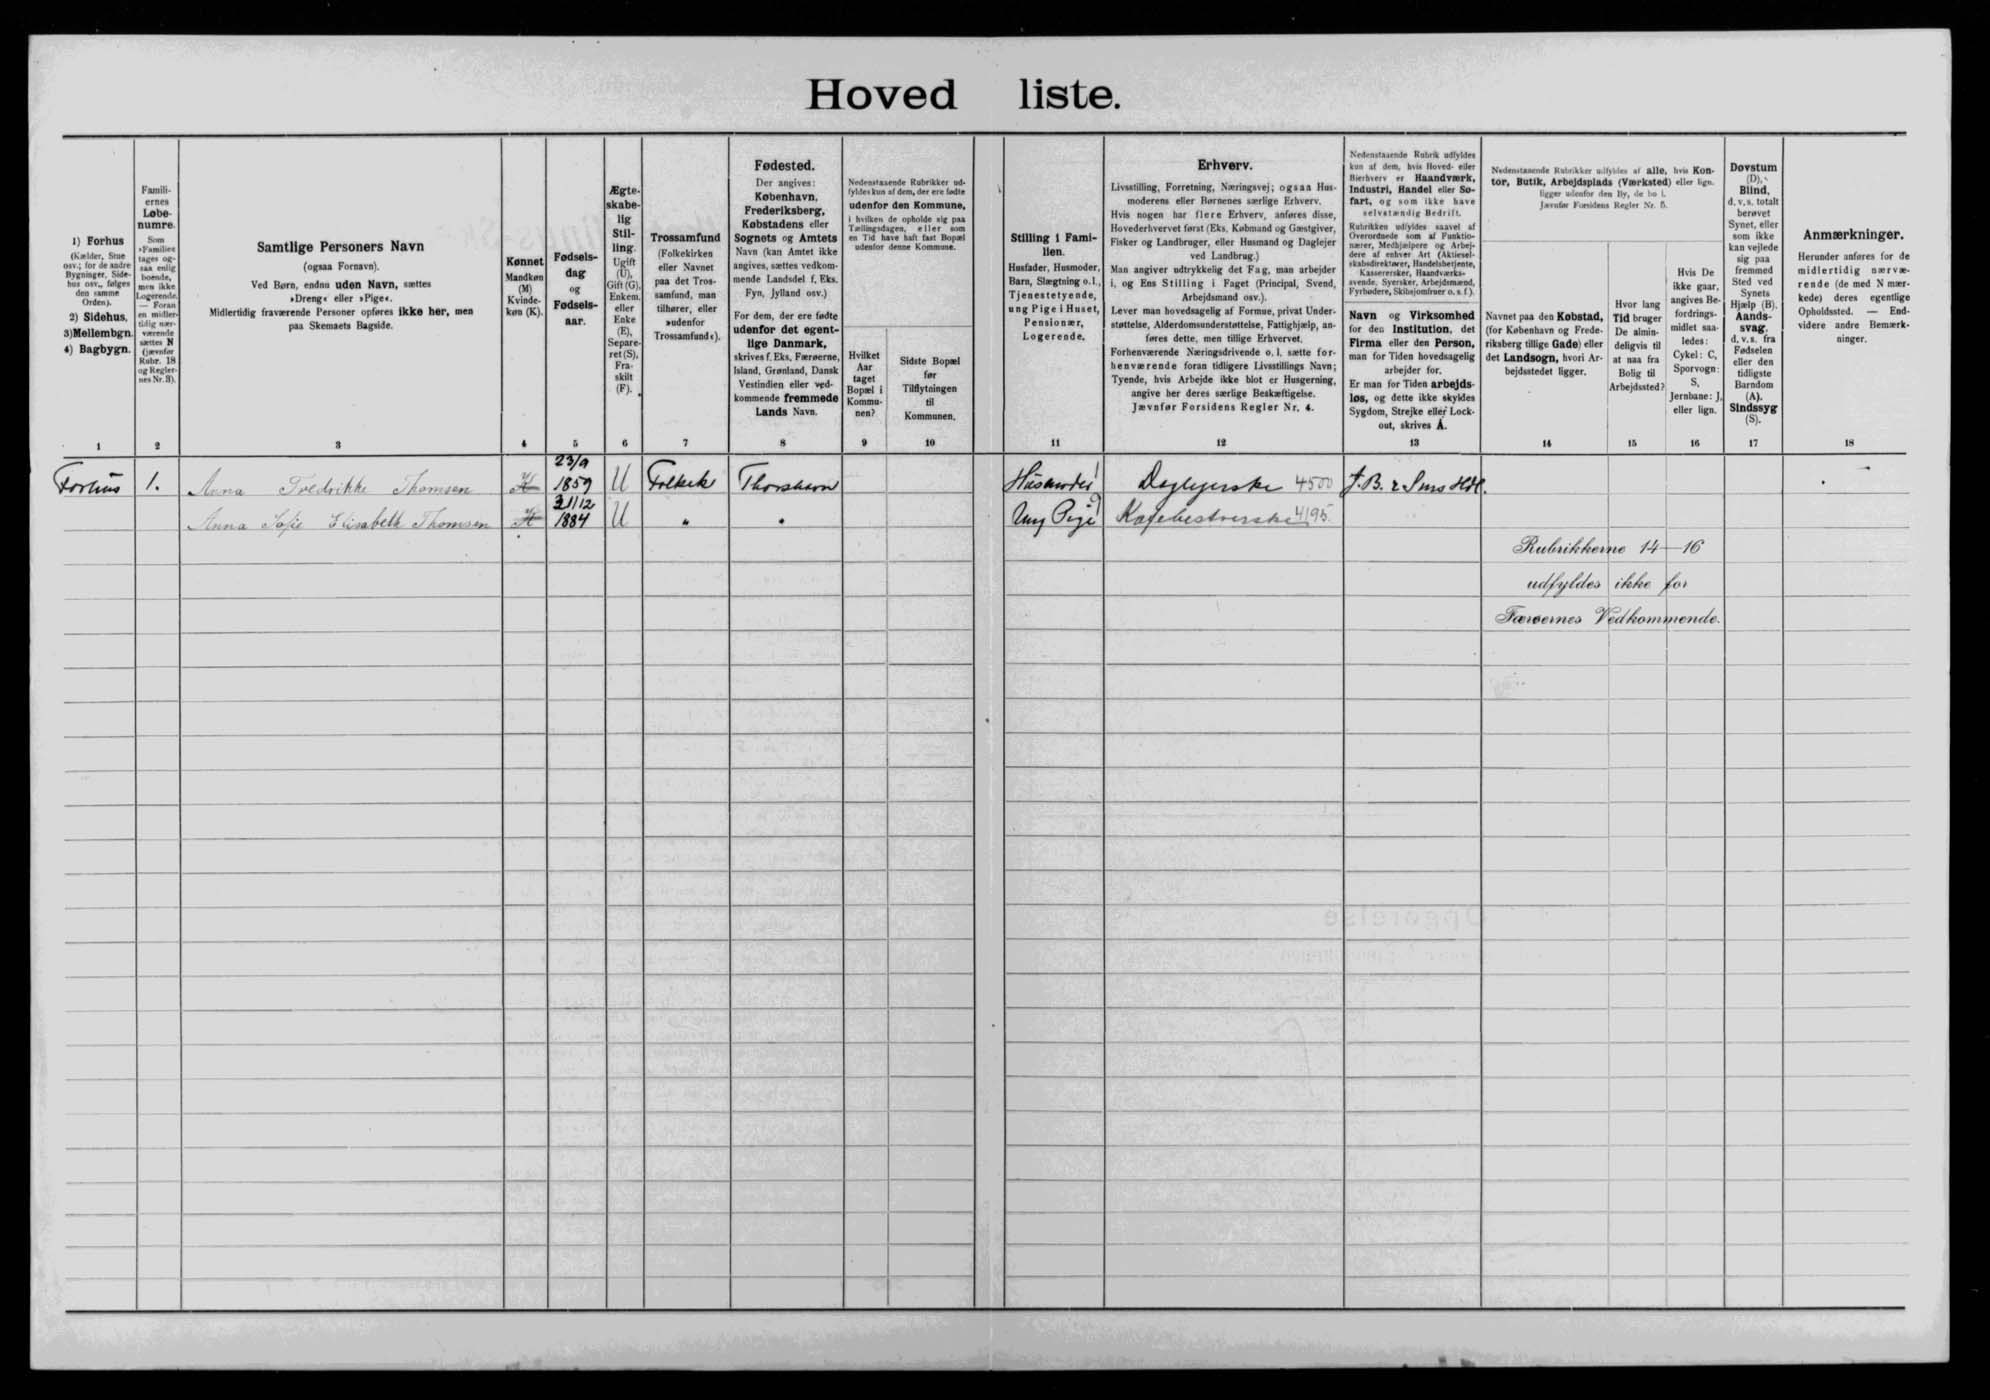 Hoved liste.
1) Forhus
(Kælder, Stue
osv.; for de andre
Bygninger, Side-
hus osv., følges
den samme
Orden).
2) Sidehus,
3) Mellembgn.
4) Bagbygn.
Famili-
ernes
Løbe-
numre.
Som
»Familie«
tages og-
saa enlig
boende,
men ikke
Logerende.
— Foran
en midler-
tidig nær-
værende
sættes N
(jævnfør
Rubr. 18
og Regler-
nes Nr. 3).
Samtlige Personers Navn
(ogsaa Fornavn).
Ved Børn, endnu uden Navn, sættes
»Dreng« eller »Pige«.
Midlertidig fraværende Personer opføres ikke her, men
paa Skemaets Bagside.
Kønnet
Mandkøn
(M)
Kvinde-
køn (K).
Fødsels-
dag
og
Fødsels-
aar.
Ægte-
skabe-
lig
Stil-
ling.
Ugift
(U),
Gift (G),
Enkem.
eller
Enke
(E),
Separe-
ret (S),
Fra-
skilt
(F).
Trossamfund
(Folkekirken
eller Navnet
paa det Tros-
samfund, man
tilhører, eller
»udenfor
Trossamfund«).
Fødested.
Der angives:
København,
Frederiksberg,
Købstadens eller
Sognets og Amtets
Navn (kan Amtet ikke
angives, sættes vedkom-
mende Landsdel f. Eks.
Fyn, Jylland osv.)
For dem, der ere fødte
udenfor det egent-
lige Danmark,
skrives f. Eks. Færøerne,
Island, Grønland, Dansk
Vestindien eller ved-
kommende fremmede
Lands Navn.
Nedenstaaende Rubrikker ud-
fyldes kun af dem, der ere fødte
udenfor den Kommune,
i hvilken de opholde sig paa
Tællingsdagen, eller som
en Tid have haft fast Bopæl
udenfor denne Kommune.
Hvilket
Aar
taget
Bopæl i
Kommu-
nen?
Sidste Bopæl
før
Tilflytningen
til
Kommunen.
Stilling i Fami-
lien.
Husfader, Husmoder,
Barn, Slægtning o. l.,
Tjenestetyende,
ung Pige i Huset,
Pensionær,
Logerende.
Erhverv.
Livsstilling, Forretning, Næringsvej; ogsaa Hus-
moderens eller Børnenes særlige Erhverv.
Hvis nogen har flere Erhverv, anføres disse,
Hovederhvervet først (Eks. Købmand og Gæstgiver,
Fisker og Landbruger, eller Husmand og Daglejer
ved Landbrug.)
Man angiver udtrykkelig det Fag, man arbejder
i, og Ens Stilling i Faget (Principal, Svend,
Arbejdsmand osv.).
Lever man hovedsagelig af Formue, privat Under-
støttelse, Alderdomsunderstøttelse, Fattighjælp, an-
føres dette, men tillige Erhvervet.
Forhenværende Næringsdrivende o. l. sætte for-
henværende foran tidligere Livsstillings Navn;
Tyende, hvis Arbejde ikke blot er Husgerning,
angive her deres særlige Beskæftigelse.
Jævnfør Forsidens Regler Nr. 4.
Nedenstaaende Rubrik udfyldes
kun af dem, hvis Hoved- eller
Bierhverv er Haandværk,
Industri, Handel eller Sø-
fart, og som ikke have
selvstændig Bedrift.
Rubrikken udfyldes saavel af
Overordnede som af Funktio-
nærer, Medhjælpere og Arbej-
dere af enhver Art (Aktiesel-
skabsdirektører, Handelsbetjente,
Kassererker, Haandværks-
svende, Syersker, Arbejdsmænd,
Fyrbødere, Skibsjomfruer o. s. f.).
Navn og Virksomhed
for den Institution, det
Firma eller den Person,
man for Tiden hovedsagelig
arbejder for.
Er man for Tiden arbejds-
løs, og dette ikke skyldes
Sygdom, Strejke eller Lock-
out, skrives A.
Nedenstaaende Rubrikker udfyldes af alle, hvis Kon-
tor, Butik, Arbejdsplads (Værksted) eller lign.
ligger udenfor den By, de bo i.
Jævnfør Forsidens Regler Nr. 5.
Navnet paa den Købstad,
(for København og Frede-
riksberg tillige Gade) eller
det Landsogn, hvori Ar-
bejdsstedet ligger.
Hvor lang
Tid bruger
De almin-
deligvis til
at naa fra
Bolig til
Arbejdssted?
Hvis De
ikke gaar,
angives Be-
fordrings-
midlet saa-
ledes:
Cykel: C,
Sporvogn:
S,
Jernbane: J.
eller lign.
Døvstum
(D),
Blind,
d. v. s. totalt
berøvet
Synet, eller
som ikke
kan vejlede
sig paa
fremmed
Sted ved
Synets
Hjælp (B).
Aands-
svag,
d. v. s. fra
Fødselen
eller den
tidligste
Barndom
(A).
Sindssyg
(S).
Anmærkninger.
Herunder anføres for de
midlertidig nærvæ-
rende (de med N mær-
kede) deres egentlige
Opholdssted. — End-
videre andre Bemærk-
ninger.
1 2 3 4 5 6 7 8 9 10 11 12 13 14 15 16 17 18
Forhus 1. Anna Fredrikke Thomsen K 23/9 1859 U Folkek Thorshavn Husmoder Daglejerske 4500 J. B. &
Anna Sofie Elisabeth Thomsen K 31/12 1884 U " " Ung Pige 4195.
Rubrikkerne 14—16
udfyldes ikke for
Færøernes Vedkommende.